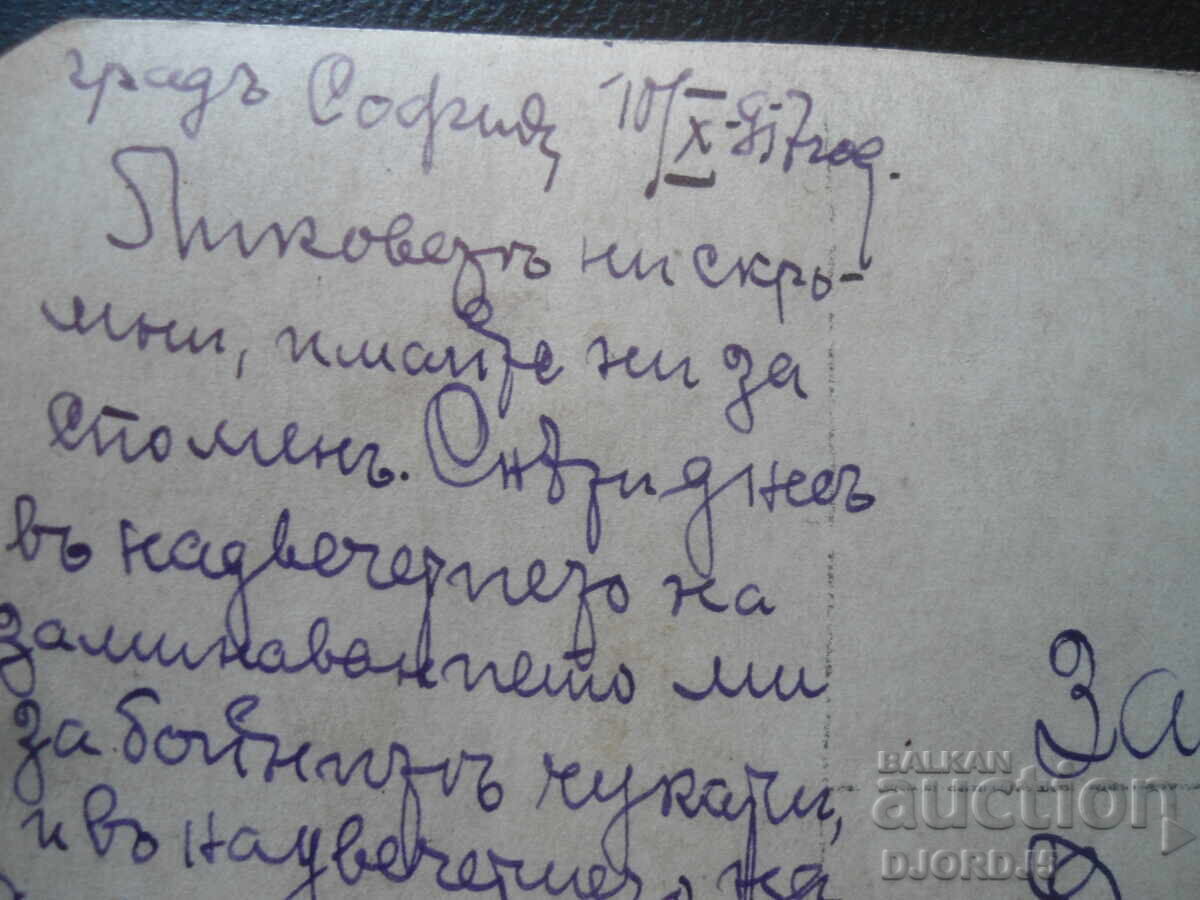 градъ София, 10/X-917 год.
Ликоветѣ ни скръ-
мни, имайте ни за
споменъ. Снѣти днесъ
въ надвечерието на
заминаванието ми
за бойнитѣ чукари,
и въ надвечерието на
За
BALKAN
auction
DJORDJ5